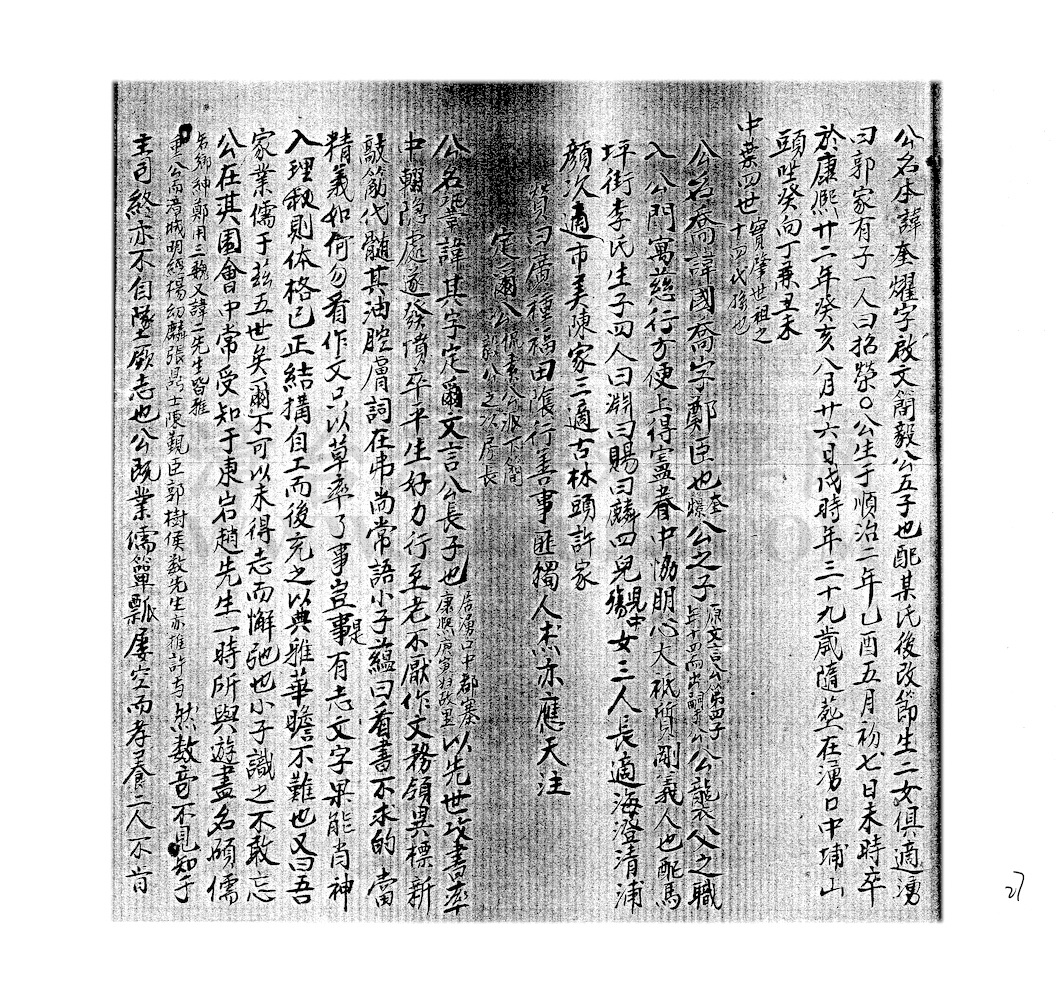 公名本諱奎耀字啟文簡毅公五子也配某氏後改節生二女俱適湧
曰郭家有子一人曰招榮○公生于順治二年乙酉五月初七日未時卒
於康熙廿二年癸亥八月廿六日戌時年三十九歲隨葬在湧口中埔山
頭坐癸向丁兼丑未
中葉四世 實肇世祖之十四代孫也
公名喬諱國喬字鄭臣也奎耀公之子 原文言公第四子年十四而出嗣于公 公襲父之職
入公門寓慈行方便上得寍眷中協朋心大祇質剛義人也配馬
坪街李氏生子四人曰淵曰賜曰麟四兒殤女三人長適海澄清浦
顏次適市美陳家三適古林頭許家
贊曰廣種福田隱行善事匪獨人杰亦應天注
定爾公 簡毅公之次房長
公名諱其字定爾文言公長子也 居湧口中郡寨 以先世攻書率
中輟隱處遂發憤卒平生好力行至老不厭作文務領異標新
敲筋代髓其油腔膚詞在弗尚常語小子蘊曰看書不求的當
精義如何勿看作文只以草率了事豈是事有志文字果能肖神
入理秋則体格已正結搆自工而後充之以典雅華瞻不難也又曰吾
家業儒于玆五世矣爾不可以未得志而懈弛也小子識之不敢忘
公在其園會中常受知于東岩趙先生一時所與遊盡名碩儒
名鄉紳鄭用三魏又諱二先生皆雅
重公而漳城明經楊幼麟張鼎士陳觀臣郭樹侯数先生亦推許与 然数竒不見知于
主司終亦不自隊厥志也公既業儒簞瓢屢空而孝養二人不肯
27